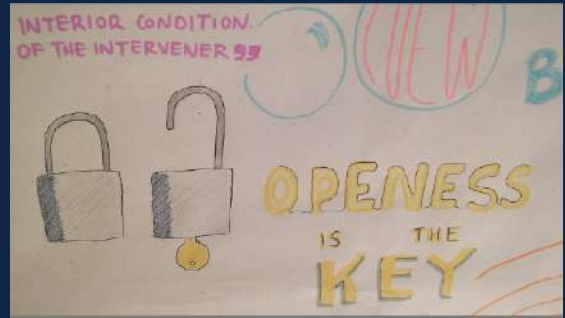 INTERIOR CONDITION
OF THE INTERVENER”
NEW
B
OPENESS
IS THE
KEY